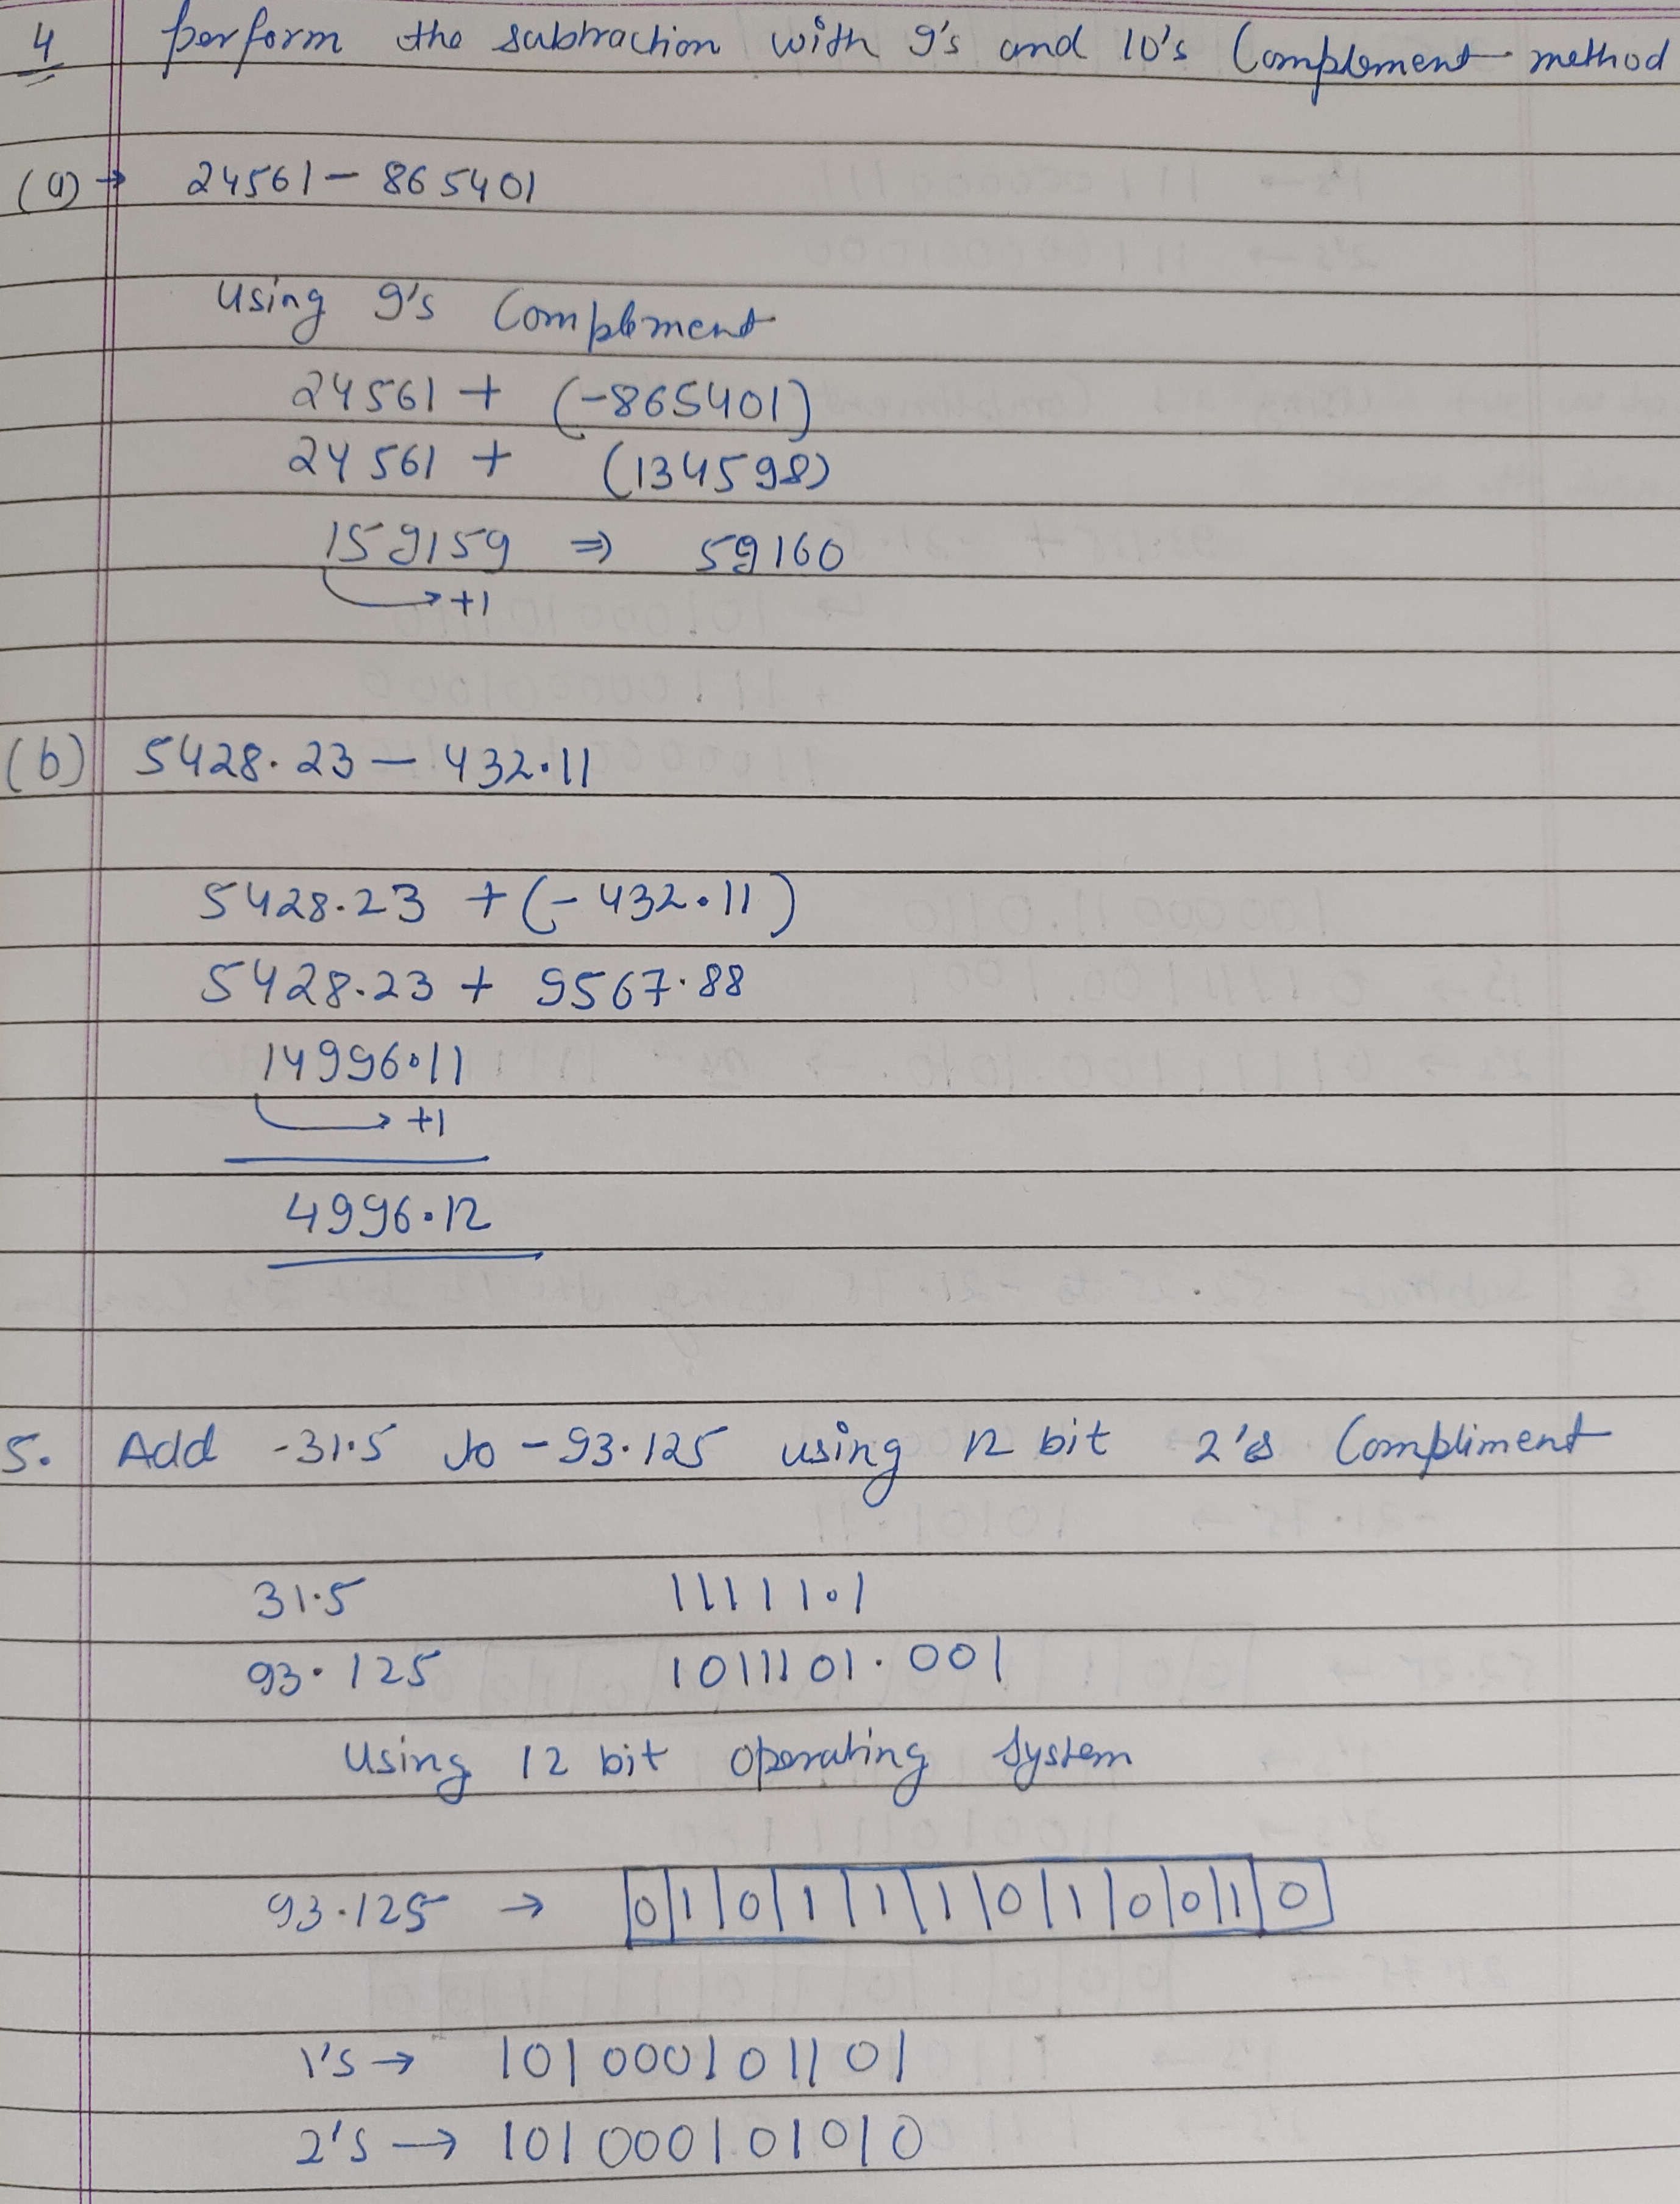 4 perform the subtraction with 9's and 10's Complement method
(a) → 24561 - 865401
Using 9's Complement
24561 + (-865401)
24561 + (134598)
159159 ⇒ 59160
→ +1
(b) 5428.23 - 432.11
5428.23 + (-432.11)
5428.23 + 9567.88
14996.11
→ +1
4996.12
5. Add -31.5 to -93.125 using 12 bit 2's Compliment
31.5 11111.1
93.125 1011101.001
Using 12 bit operating System
93.125 → 0 1 0 1 1 1 0 1 0 0 1 0
1's → 101000101101
2's → 101000101010